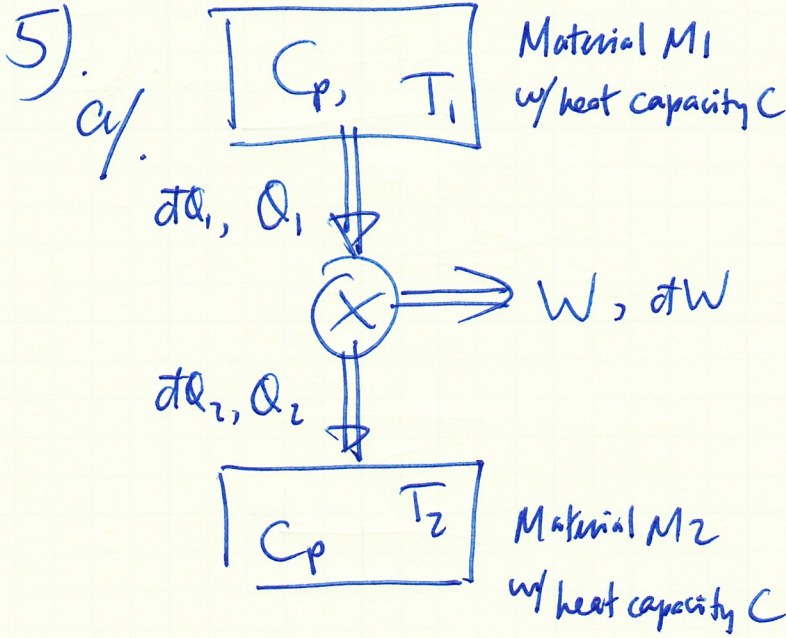 5).
a/.
Cp, T1
Material M1
w/ heat capacity C
đQ1, Q1
X
W, đW
đQ2, Q2
T2
Cp
Material M2
w/ heat capacity C